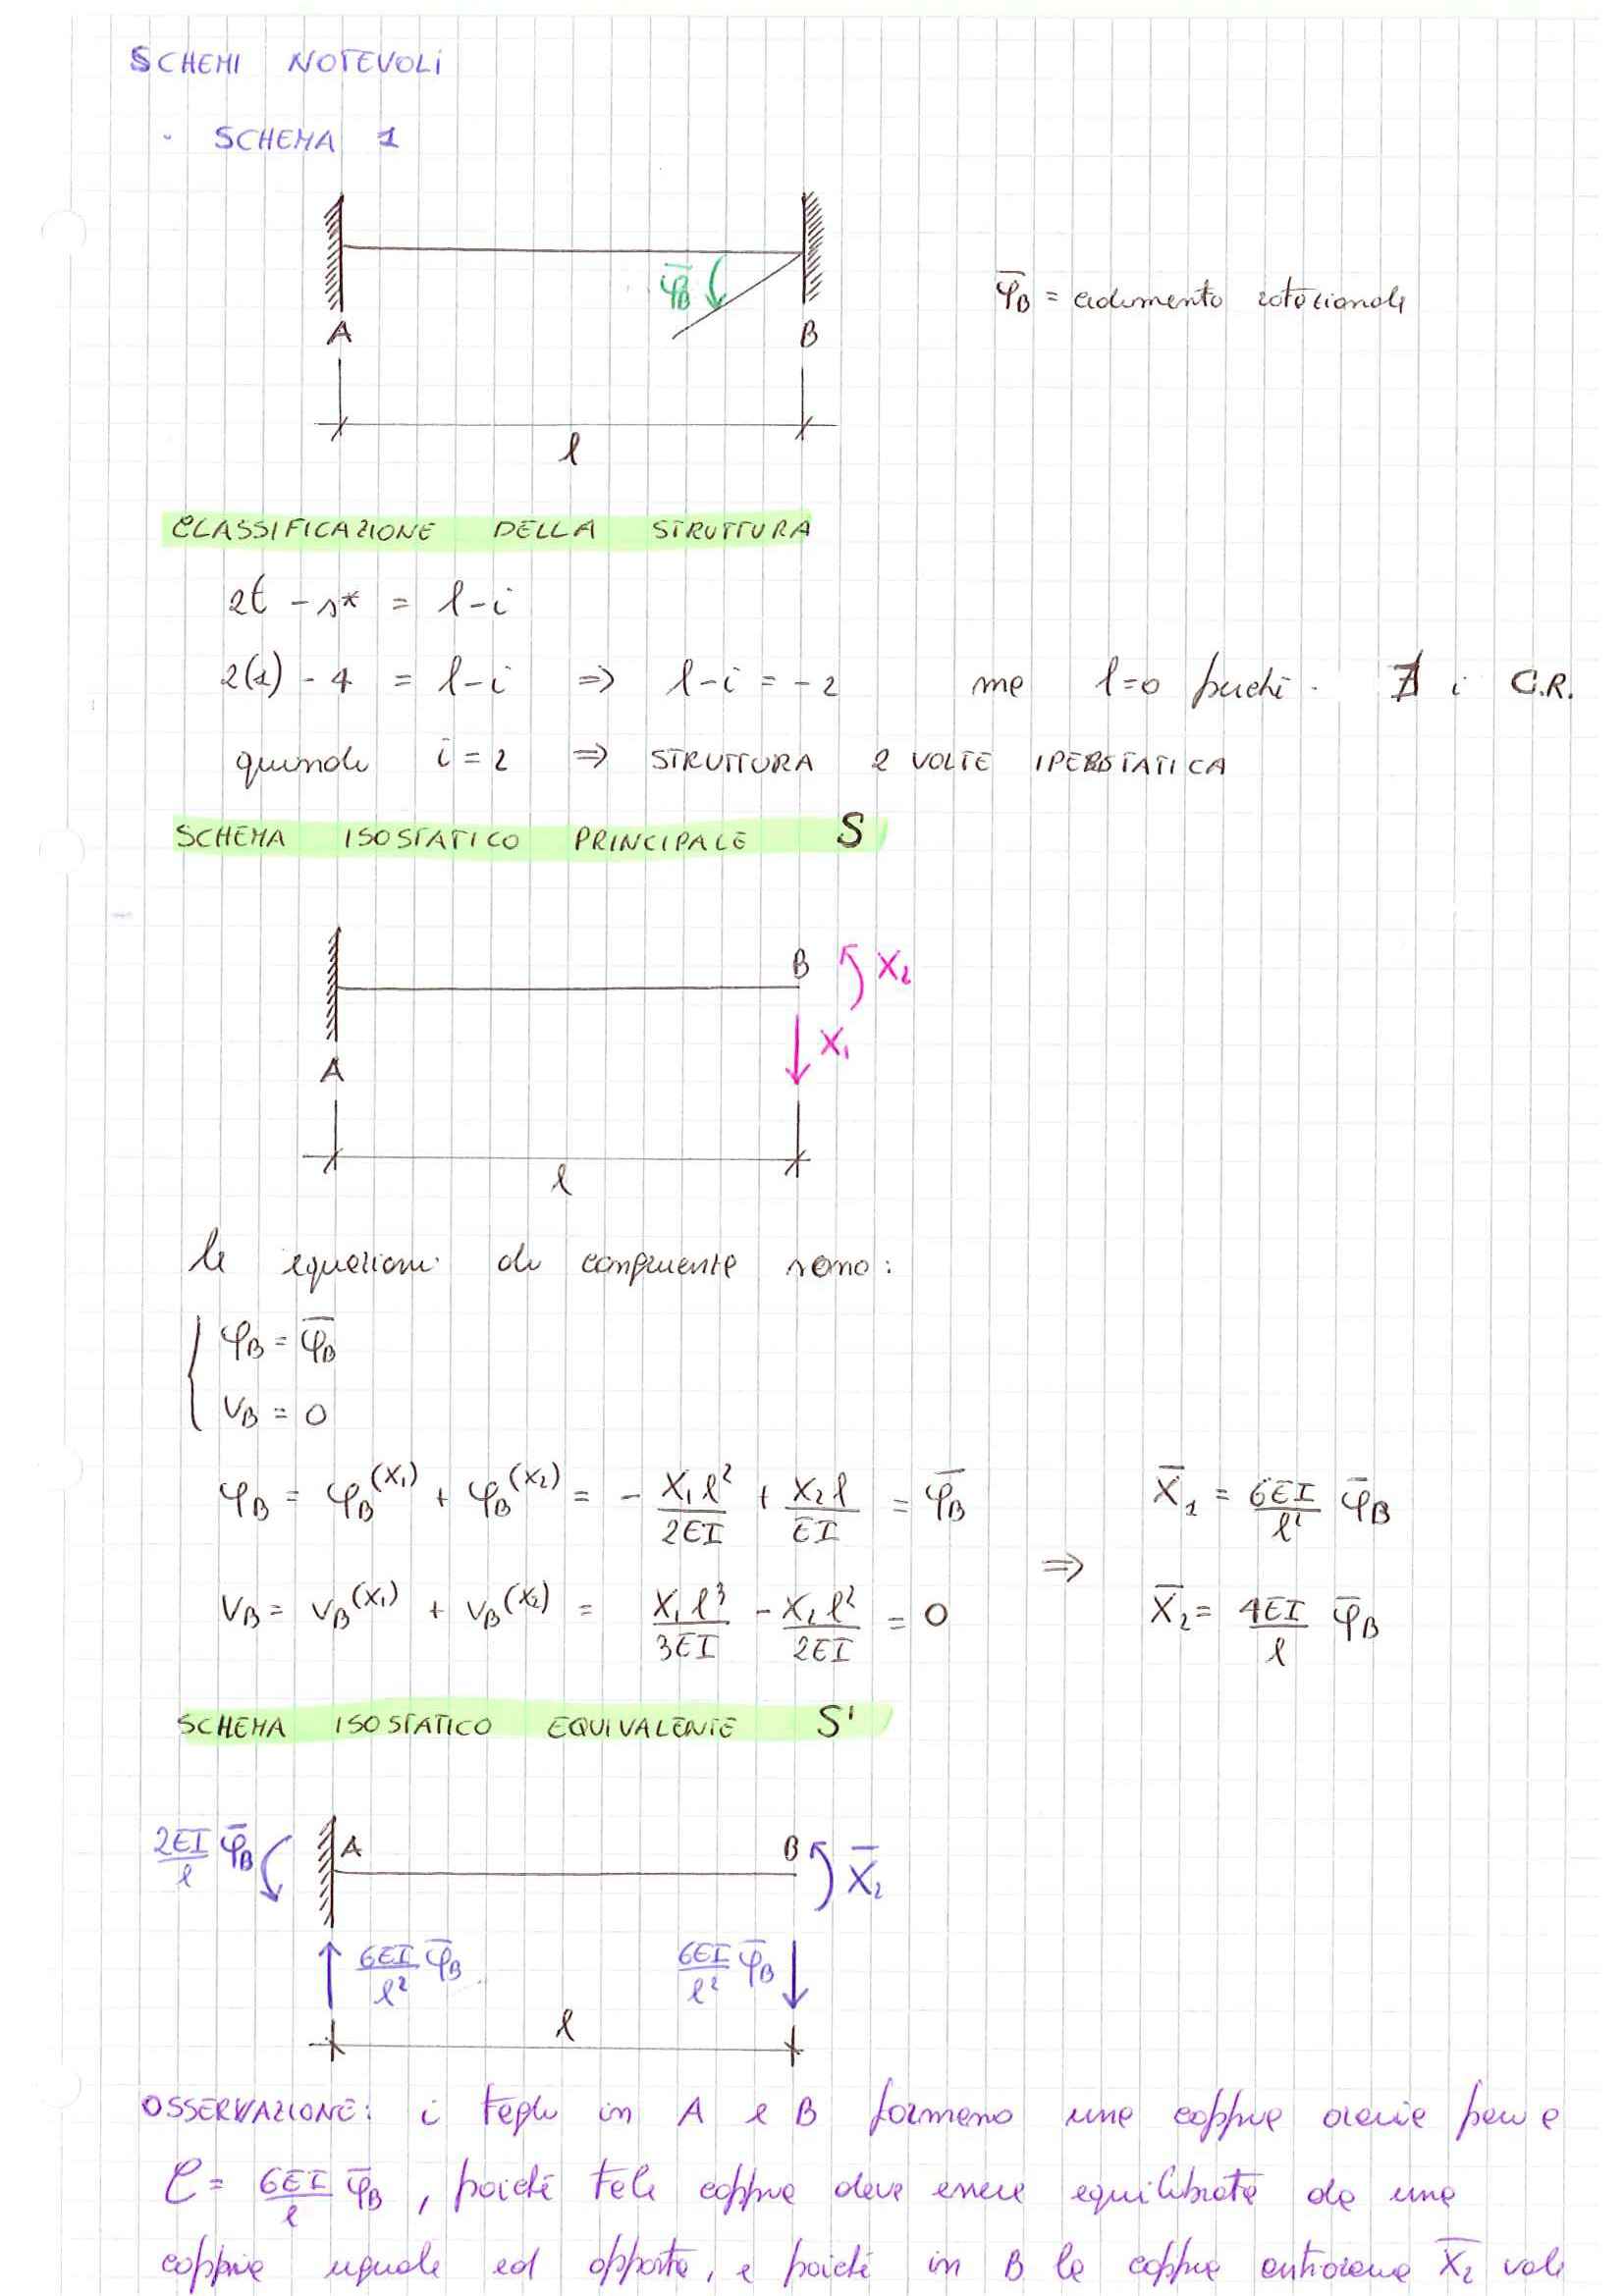 SCHEMI NOTEVOLI
- SCHEMA 1
φ̄B
φ̄B = cedimento rotazionale
A B
l
CLASSIFICAZIONE DELLA STRUTTURA
2t - s* = l-i
2(1) - 4 = l-i ⇒ l-i = -2 ma l=0 perché ∄ i C.R.
quindi i=2 ⇒ STRUTTURA 2 VOLTE IPERSTATICA
SCHEMA ISOSTATICO PRINCIPALE S
B X2
X1
A
l
le equazioni di congruenza sono:
φB = φ̄B
vB = 0
φB = φB(X1) + φB(X2) = - X1l²/2EI + X2l/EI = φ̄B
X̄1 = 6EI/l² φ̄B
⇒
vB = vB(X1) + vB(X2) = X1l³/3EI - X2l²/2EI = 0
X̄2 = 4EI/l φ̄B
SCHEMA ISOSTATICO EQUIVALENTE S'
2EI/l φ̄B A B X̄2
6EI/l² φ̄B 6EI/l² φ̄B
l
OSSERVAZIONE: i tagli in A e B formano una coppia oraria pari a
C = 6EI/l φ̄B, poiché tale coppia deve essere equilibrata da una
coppia uguale ed opposta, e poiché in B la coppia antioraria X̄2 vale